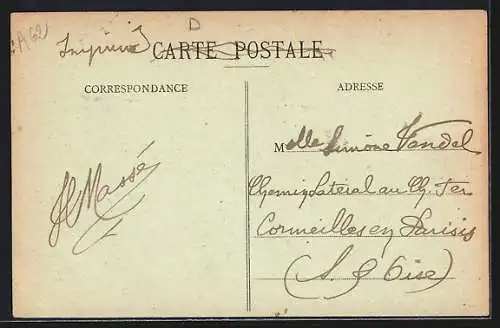 A62
D
Imprimé
CARTE POSTALE
CORRESPONDANCE
ADRESSE
Melle Simône Vandel
Chemin Latéral au Ch. Fer
Cormeilles en Parisis
(S. & Oise)
Massé